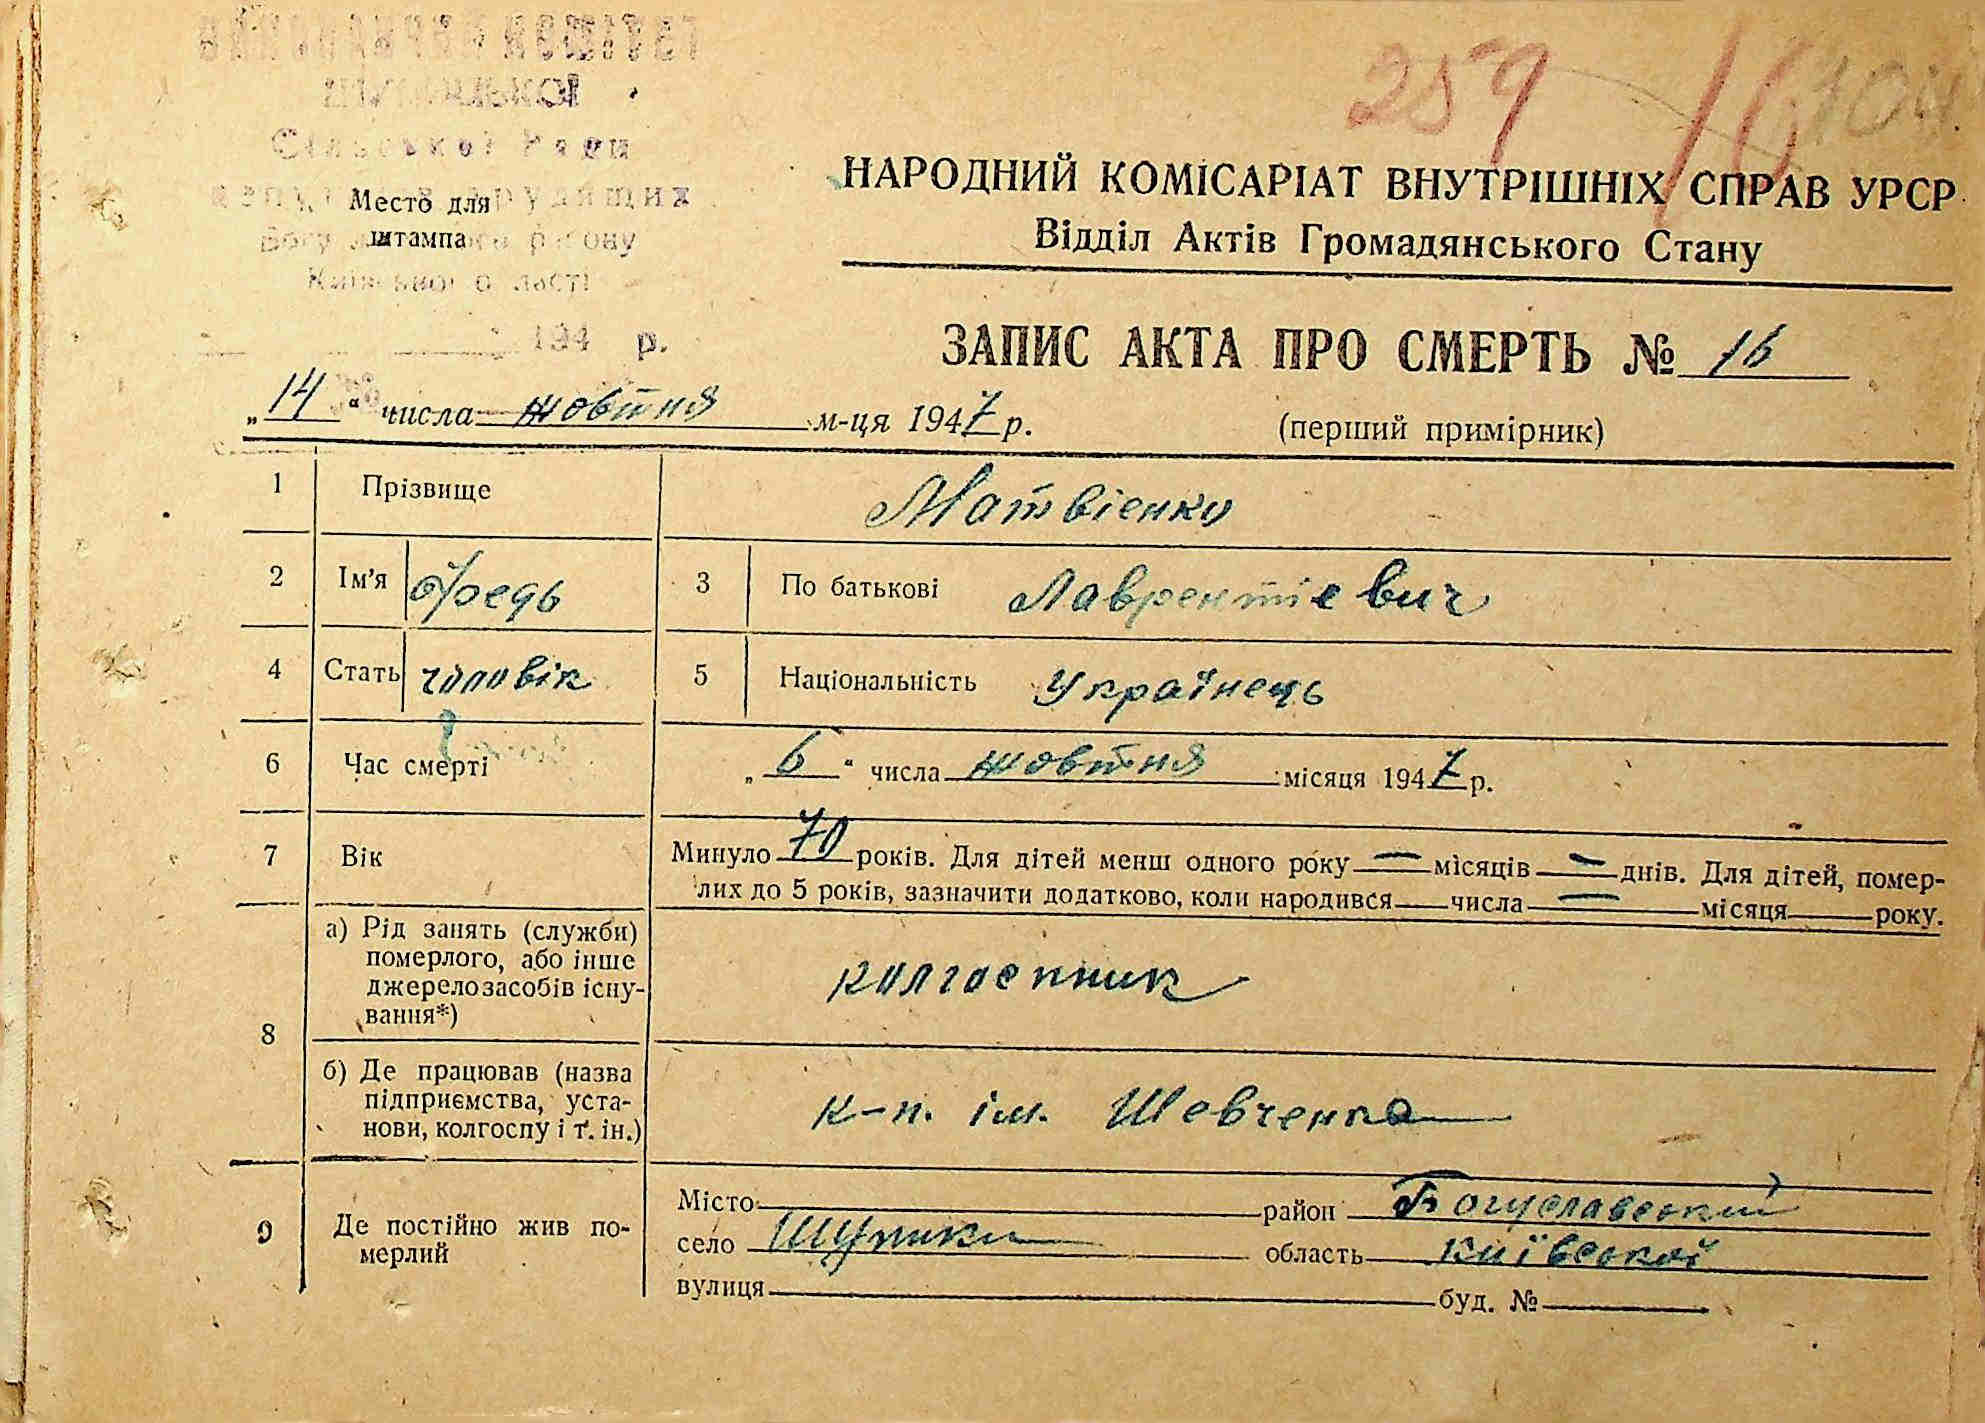 259 16 104
Сільської Ради
Место для
штампа
194 р.
НАРОДНИЙ КОМІСАРІАТ ВНУТРІШНІХ СПРАВ УРСР
Відділ Актів Громадянського Стану
ЗАПИС АКТА ПРО СМЕРТЬ № 16
„14“ числа жовтня м-ця 1947 р.
(перший примірник)
1 Прізвище Матвієнко
2 Ім'я Федь 3 По батькові Лаврентієвич
4 Стать чоловік 5 Національність Українець
6 Час смерті „6“ числа жовтня місяця 1947 р.
7 Вік Минуло 70 років. Для дітей менш одного року — місяців — днів. Для дітей, помер-
лих до 5 років, зазначити додатково, коли народився числа — місяця року.
8 а) Рід занять (служби)
померлого, або інше
джерело засобів існу-
вання*)
колгоспник
б) Де працював (назва
підприємства, уста-
нови, колгоспу і т. ін.)
к-п. ім. Шевченка
9 Де постійно жив по-
мерлий
Місто район Богуславський
село Шупики область Київської
вулиця буд. №